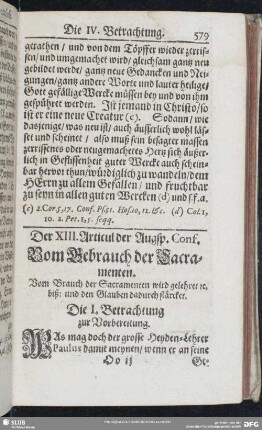 Die IV. Betrachtung. 579
gerathen / und von dem Töpffer wieder zerris-
sen / und umgemachet wird / gleichsam gantz neu
gebildet werde / gantz neue Gedancken und Nei-
gungen / gantz andere Worte und lauter heilige /
Gott gefällige Wercke müssen bey und von ihm
gespühret werden. Ist jemand in Christo / so
ist er eine neue Creatur (c). Sodann / wie
dasjenige / was neu ist / auch äusserlich wohl läs-
set und scheinet / also muß sein besagter massen
zerrissenes oder neugemachtes Hertz sich äusser-
lich in Geflissenheit guter Wercke auch schein-
bar hervor thun / würdiglich zu wandeln / dem
HErrn zu allem Gefallen / und fruchtbar
zu seyn in allen guten Wercken (d) und s.f.a.
(c) 2.Cor.5,17. Conf. Ps.51. Hos.10,12.&c. (d) Col.1,
10. 2. Pet.1,5. seqq.
Der XIII. Articul der Augsp. Conf.
Vom Gebrauch der Sacra-
menten.
Vom Brauch der Sacramenten wird gelehret ec.
biß: und den Glauben dadurch stärcket.
Die I. Betrachtung
zur Vorbereitung.
WAs mag doch der grosse Heyden-Lehrer
Paulus damit meynen / wenn er an seine
Oo ij Ge-
SLUB
DFG